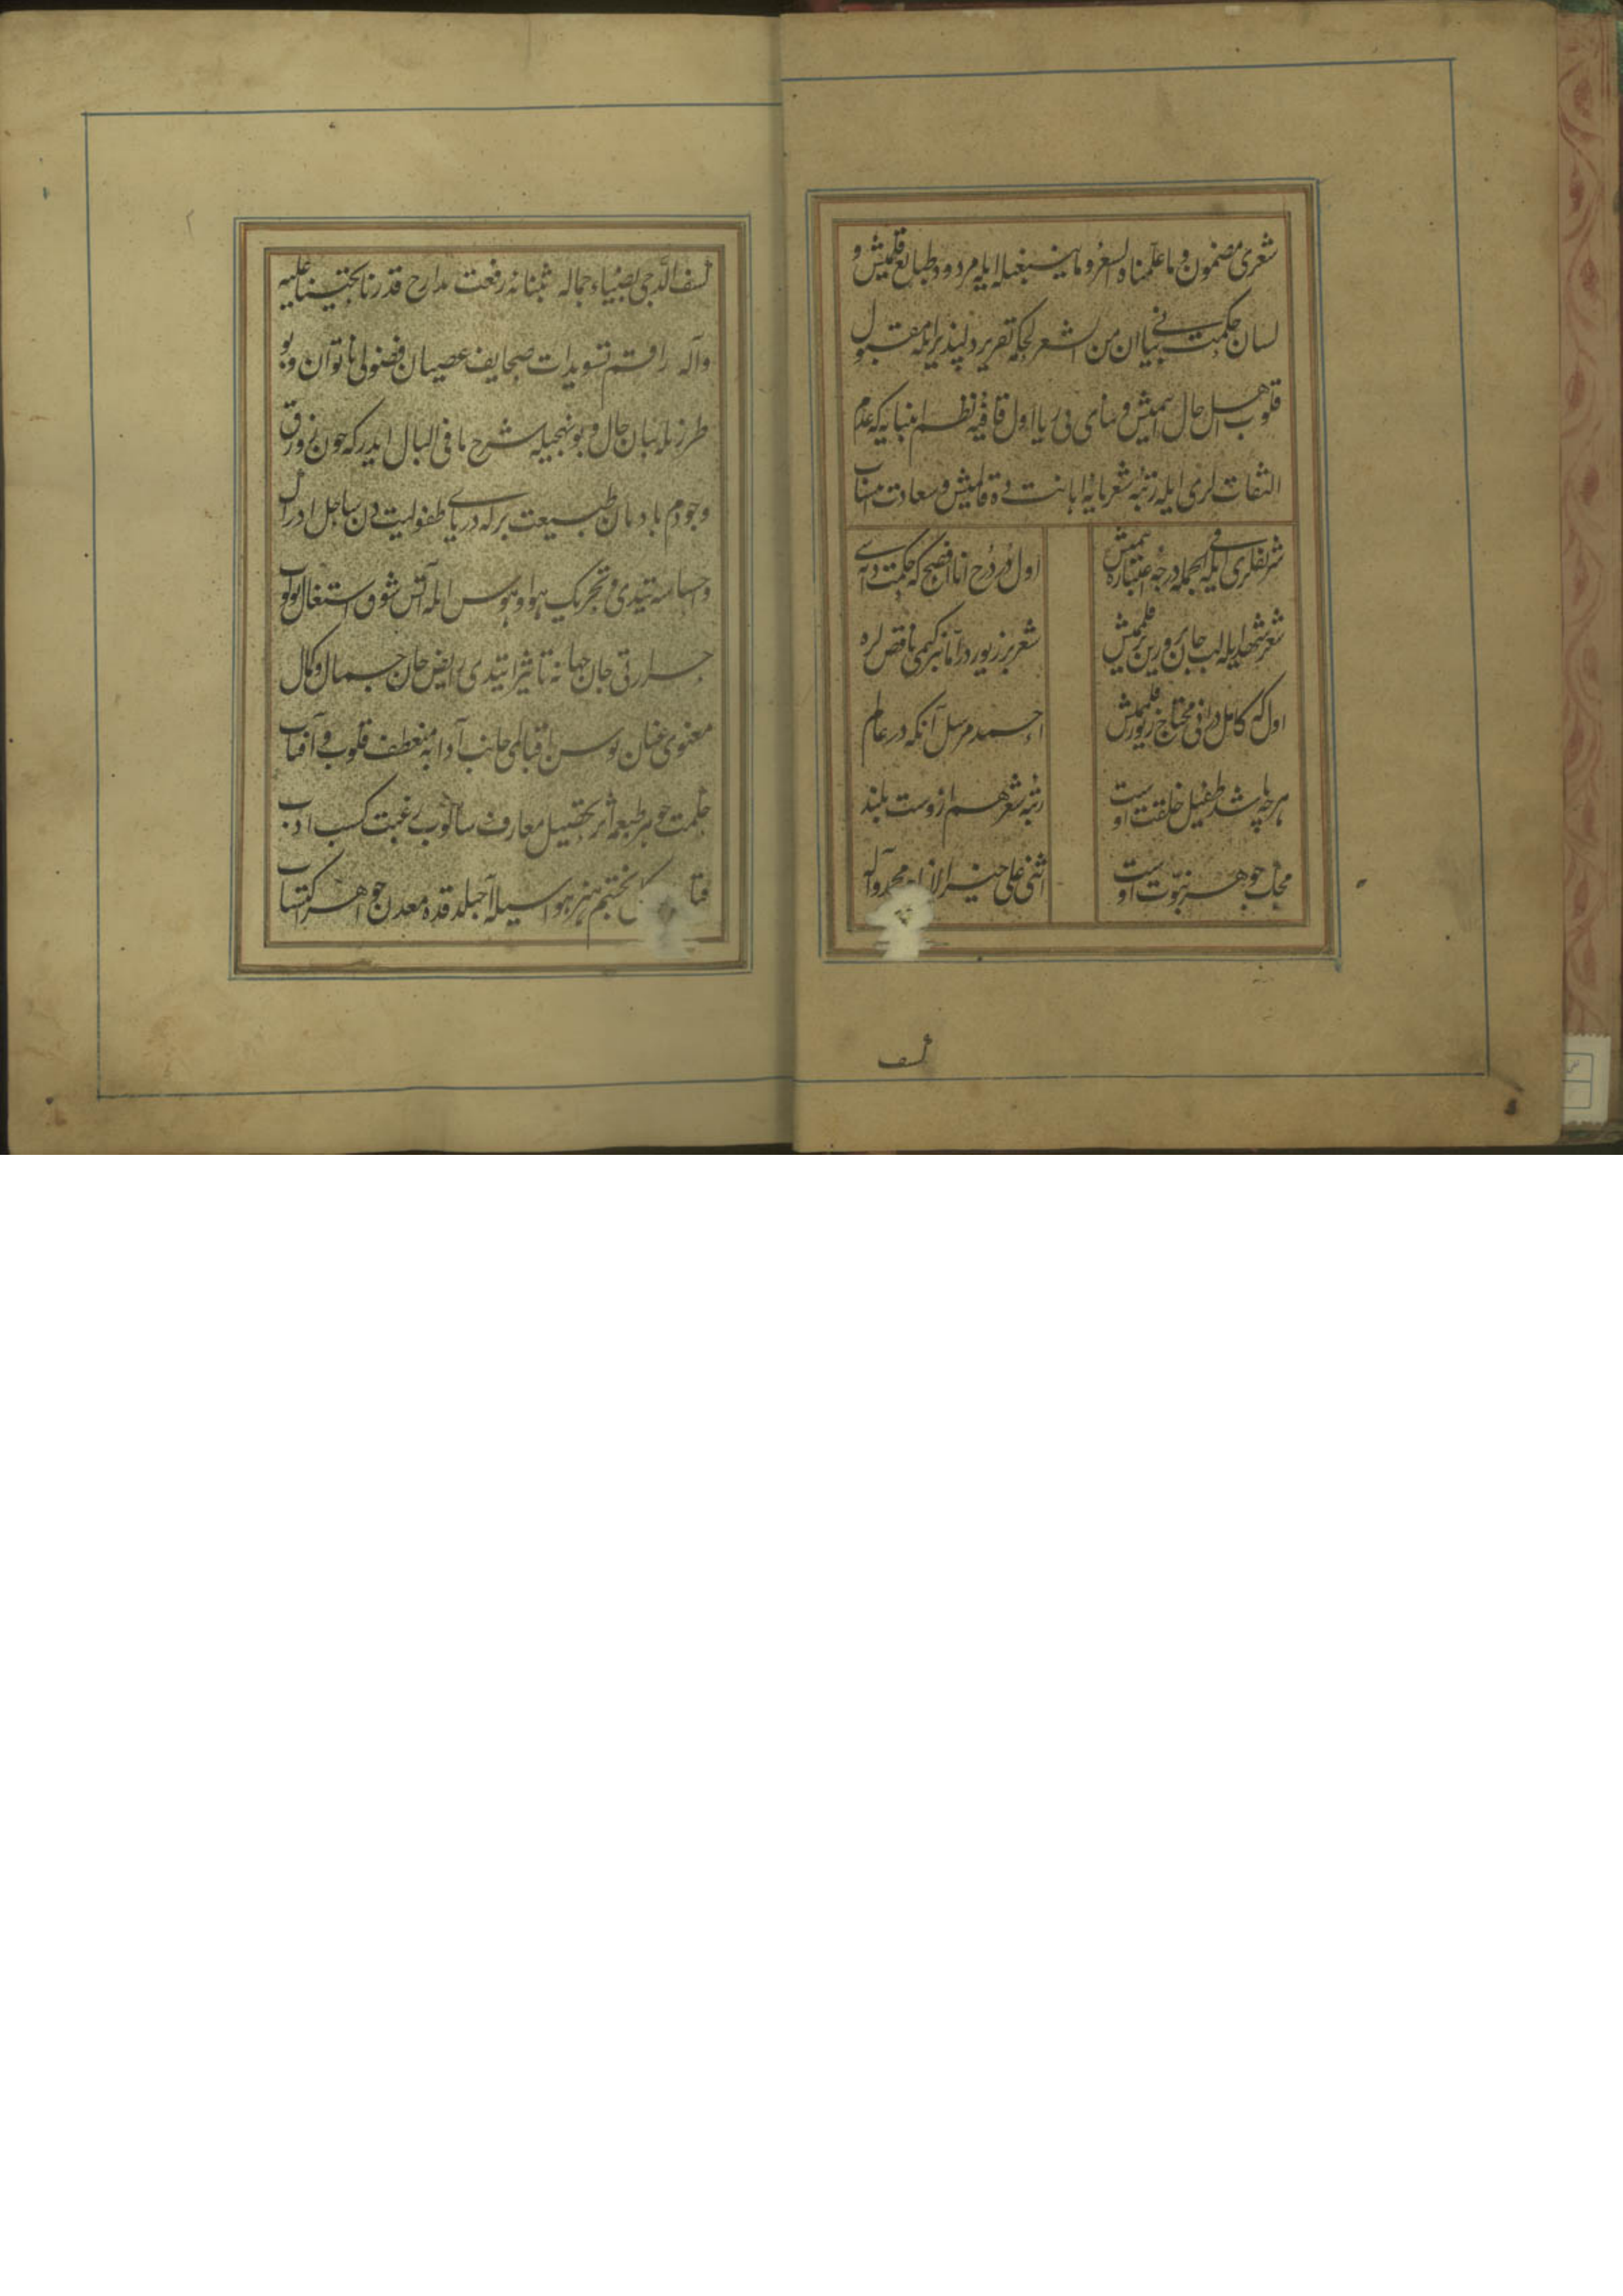 شعری مضمون و ما علمناه الشعر و ما ینبغی له ایله مردود طبایع قلمیش و
لسان حکمت بیانی ان من الشعر لحکمه تقریر دلپذیر ایله مقبول
قلوب اهل حال ایتمیش و بنای بی ریا اول قافیه نظم انبیایه که عدم
التفات لری ایله رتبه شعرایه اهانت دوته قالمیش و سعادت
شریفلری ایله فی الجمله درجه اعتباره یتمیش
اول در درج انا افصح که حکمت دن
شعر شهدیله لب جان پرورین قلممیش
شعر بر زیوردر اما نیز کیمی ناقص لره
اول که کامل در انی محتاج زیور قلممیش
احمد مرسل آنکه در عالم
هر چه باشد طفیل خلقت اوست
رتبه شعر هم ازوست بلند
مجمل جوهر نبوت اوست
اثنی علی خیر الانام محمد وآله
کشف
کشف الدجی بضیاء جماله ثبتنا نه رفعت مدارح قدرنا بتحیتنا علیه
وآله راقم تسویدات صحایف عصیان فضولی ناتوان بو
طرزیله بیان حال و بو نهجیله شرح ما فی البال ایدر که چون زورق
وجودم بادبان طبیعت برله دریای طفولیت دن ساحل ادراک
و احساسه یتدی و تحریک هوا و هوس ایله آتش شوق اشتعال بولوب
حرارتی جان جهانه تاثیر ایتدی رایض جان جمال و کمال
معنوی عنان توسن اقبالی جانب آدابه منعطف قلوب و آفتاب
حکمت جوهر طبعه اثر تحصیل معارف سالوب رغبت کسب ادب
تخم هنر بو اسیله آجیلدقده معدن جواهر اکتساب